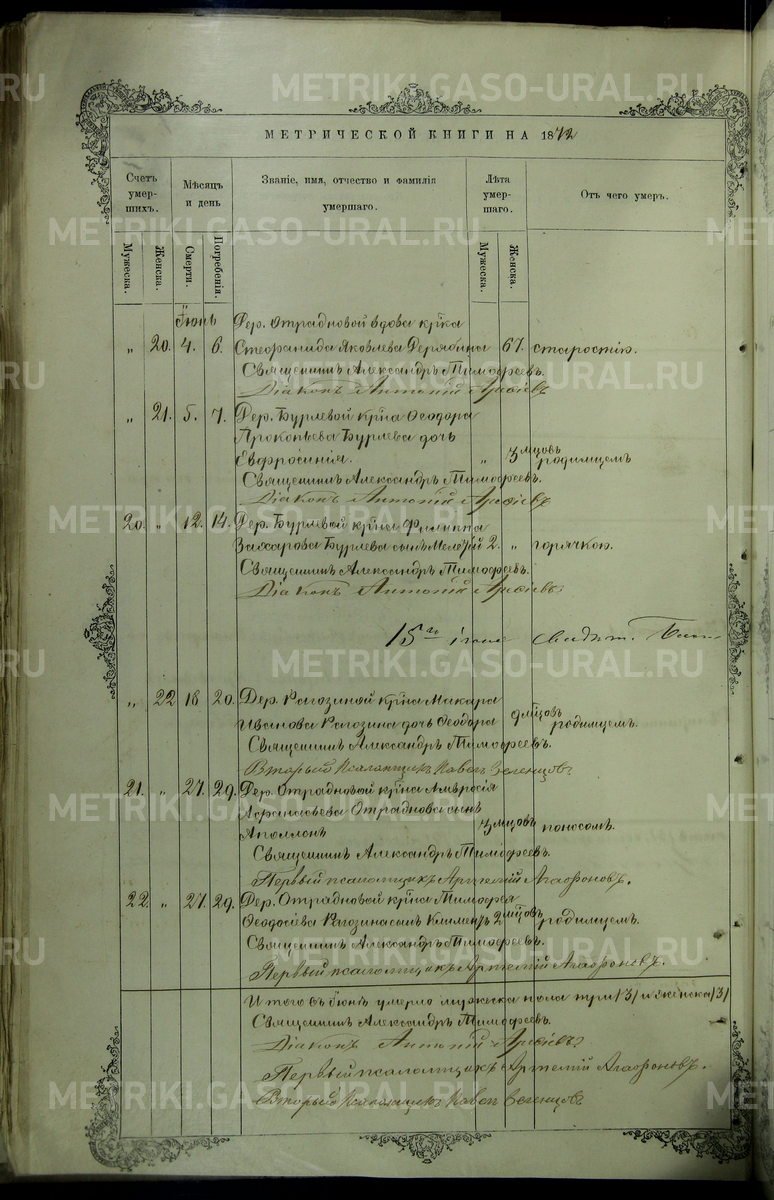 METRIKI.GASO-URAL.RU
МЕТРИЧЕСКОЙ КНИГИ НА 1872
Счетъ умер-шихъ.
Мѣсяцъ и день
Званіе, имя, отчество и фамилія умершаго.
Лѣта умер-шаго.
Отъ чего умеръ.
Мужеска. Женска. Смерти. Погребенія. Мужеска. Женска.
Іюнь Дер. Отрадновой вдова кр҃ка
„ 20. 4. 6. Стефанида Яковлева Дерябина 67. старостію.
Священникъ Александръ Тимофеевъ.
Діаконъ Антоній
„ 21. 5. 7. Дер. Бурлевой кр҃на Ѳеодора
Прокопьева Бурлева дочь
Евфросинія. „ 3 мцовъ родимцемъ
Священникъ Александръ Тимофеевъ.
Діаконъ Антоній
20. „ 12. 14. Дер. Бурлевой кр҃на Филиппа
Захарова Бурлева сынъ Мелетій 2. „ горячкою.
Священникъ Александръ Тимофеевъ.
Діаконъ Антоній
15 іюня
„ 22 18 20. Дер. Рагозиной кр҃на Макара
Иванова Рагозина дочь Ѳеодора 9 мцовъ родимцемъ.
Священникъ Александръ Тимофеевъ.
Вторый Псаломщикъ Павелъ
21. „ 27. 29. Дер. Отрадновой кр҃на Амвросія
Афанасьева Отраднова сынъ
Аполлонъ 3 мцовъ поносомъ.
Священникъ Александръ Тимофеевъ.
Первый псаломщикъ Артемій Агафоновъ.
22. „ 27. 29. Дер. Отрадновой кр҃на Тимофея
Ѳеодосіева Рагозина сынъ Климентъ 2 мцовъ родимцемъ.
Священникъ Александръ Тимофеевъ.
Первый псаломщикъ Артемій Агафоновъ.
Итого въ Іюнѣ умерло мужеска пола три /3/ и женска /3/
Священникъ Александръ Тимофеевъ.
Діаконъ Антоній
Первый псаломщикъ Артемій Агафоновъ.
Вторый Псаломщикъ Павелъ